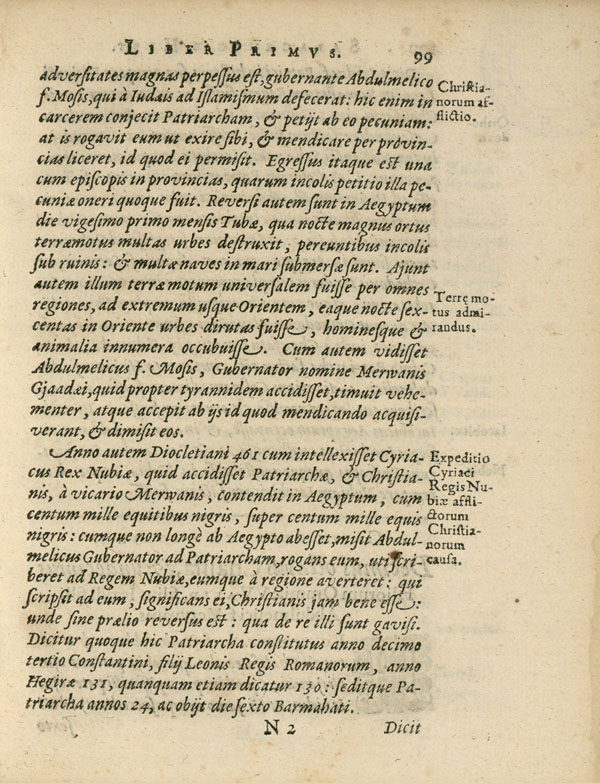 LIBER PRIMVS. 99
adversitates magnas perpessus est, gubernante Abdulmelico
f. Mosis, qui à Iudais ad Islamismum defecerat: hic enim in
carcerem conjecit Patriarcham, & petijt ab eo pecuniam:
at is rogavit eum ut exire sibi, & mendicare per provin-
cias liceret, id quod ei permisit. Egressus itaque est una
cum episcopis in provincias, quarum incolis petitio illa pe-
cuniæ oneri quoque fuit. Reversi autem sunt in Aegyptum
die vigesimo primo mensis Tubæ, qua nocte magnus ortus
terræmotus multas urbes destruxit, pereuntibus incolis
sub ruinis: & multæ naves in mari submersæ sunt. Ajunt
autem illum terræ motum universalem fuisse per omnes
regiones, ad extremum usque Orientem, eaque nocte sex-
centas in Oriente urbes dirutas fuisse, hominesque &
animalia innumera occubuisse. Cum autem vidisset
Abdulmelicus f. Mosis, Gubernator nomine Merwanis
Gjaadæi, quid propter tyrannidem accidisset, timuit vehe-
menter, atque accepit ab ijs id quod mendicando acquisi-
verant, & dimisit eos.
Anno autem Diocletiani 461 cum intellexisset Cyria-
cus Rex Nubiæ, quid accidisset Patriarchæ, & Christia-
nis, à vicario Merwanis, contendit in Aegyptum, cum
centum mille equitibus nigris, super centum mille equis
nigris: cumque non longè ab Aegypto abesset, misit Abdul-
melicus Gubernator ad Patriarcham, rogans eum, uti scri-
beret ad Regem Nubiæ, eumque à regione averteret: qui
scripsit ad eum, significans ei, Christianis jam bene esse:
unde sine prælio reversus est: qua de re illi sunt gavisi.
Dicitur quoque hic Patriarcha constitutus anno decimo
tertio Constantini, filij Leonis Regis Romanorum, anno
Hegiræ 131, quanquam etiam dicatur 130: seditque Pa-
triarcha annos 24, ac obijt die sexto Barmahati.
N 2 Dicit
Christia-
norum af-
flictio.
Terrę mo-
tus admi-
randus.
Expeditio
Cyriaci
Regis Nu-
biæ affli-
ctorum
Christia-
norum
causa.